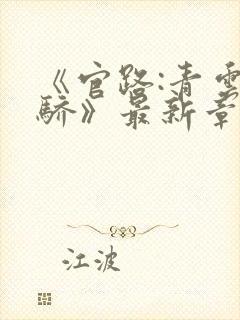 《官路:青雲
驕》最新章
江波